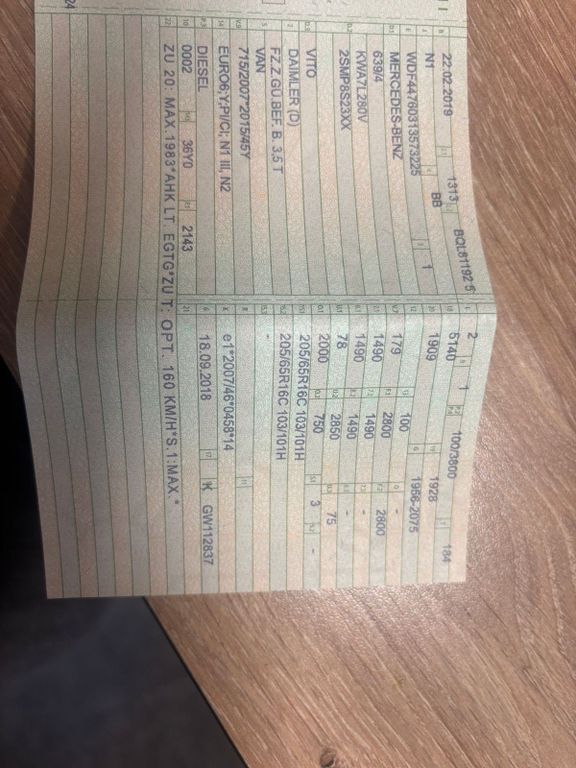 22.02.2019 1313 BQL81192 5
N1 BB 1
WDF44760313573225
MERCEDES-BENZ
639/4
KWA7L280V
2SMP8S23XX
VITO
DAIMLER (D)
FZ.Z.GÜ.BEF. B. 3,5 T
VAN
715/2007*2015/45Y
EURO6;Y;PI/CI; N1 III, N2
DIESEL
0002 36Y0 2143
ZU 20: MAX.1983*AHK LT. EGTG*ZU T: OPT. 160 KM/H*S.1:MAX.*
2 1 100/3800 184
5140 1928
1909 1956-2075
179 100 -
1490 2800 2800
1490 1490 -
78 1490 -
2000 2850 75
750 3 -
205/65R16C 103/101H
205/65R16C 103/101H
-
e1*2007/46*0458*14
18.09.2018 K GW112837
24